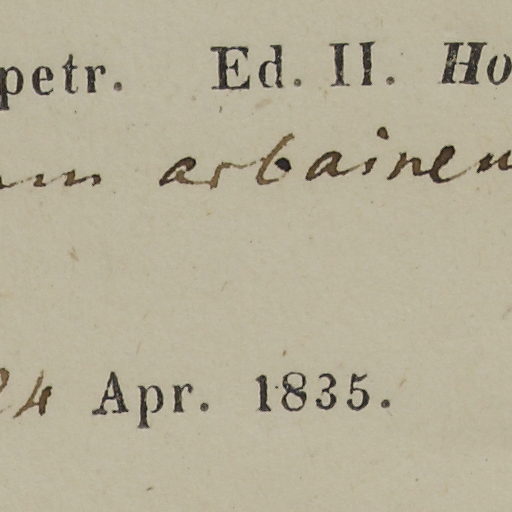 petr. Ed. II. Ho
um arbainen
24 Apr. 1835.